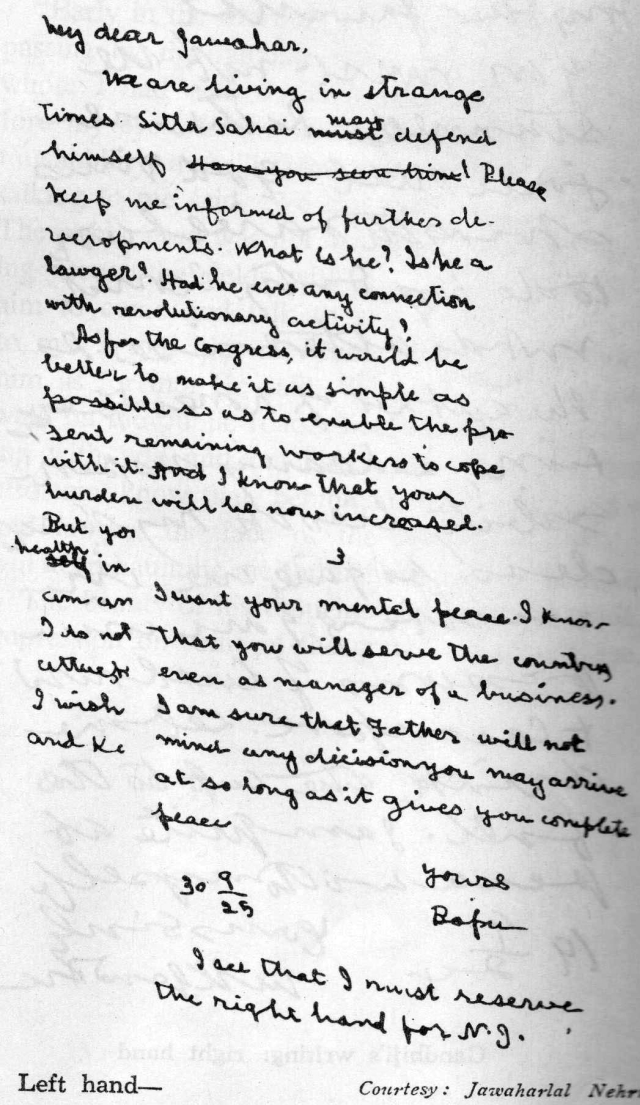 My dear Jawahar,
We are living in strange
times. Sitla Sahai may must defend
himself Have you seen him! Please
keep me informed of further de-
velopments. What is he? Is he a
lawyer? Had he ever any connection
with revolutionary activity?
As for the Congress, it would be
better to make it as simple as
possible so as to enable the pre
sent remaining workers to cope
with it. And I know that your
burden will be now increased.
But you
health self in
concern
I do not
utmost
I wish
and Ke
3
I want your mental peace. I know
that you will serve the country
even as manager of a business.
I am sure that Father will not
mind any decision you may arrive
at so long as it gives you complete
peace
30 9/25
Yours
Bapu
I see that I must reserve
the right hand for N.J.
Left hand—
Courtesy: Jawaharlal Nehr